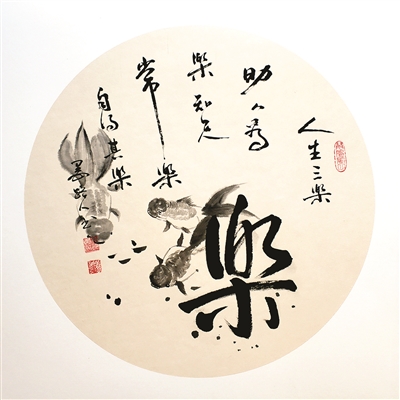 人生三樂
助人為
樂知足
常樂
自得其樂
樂